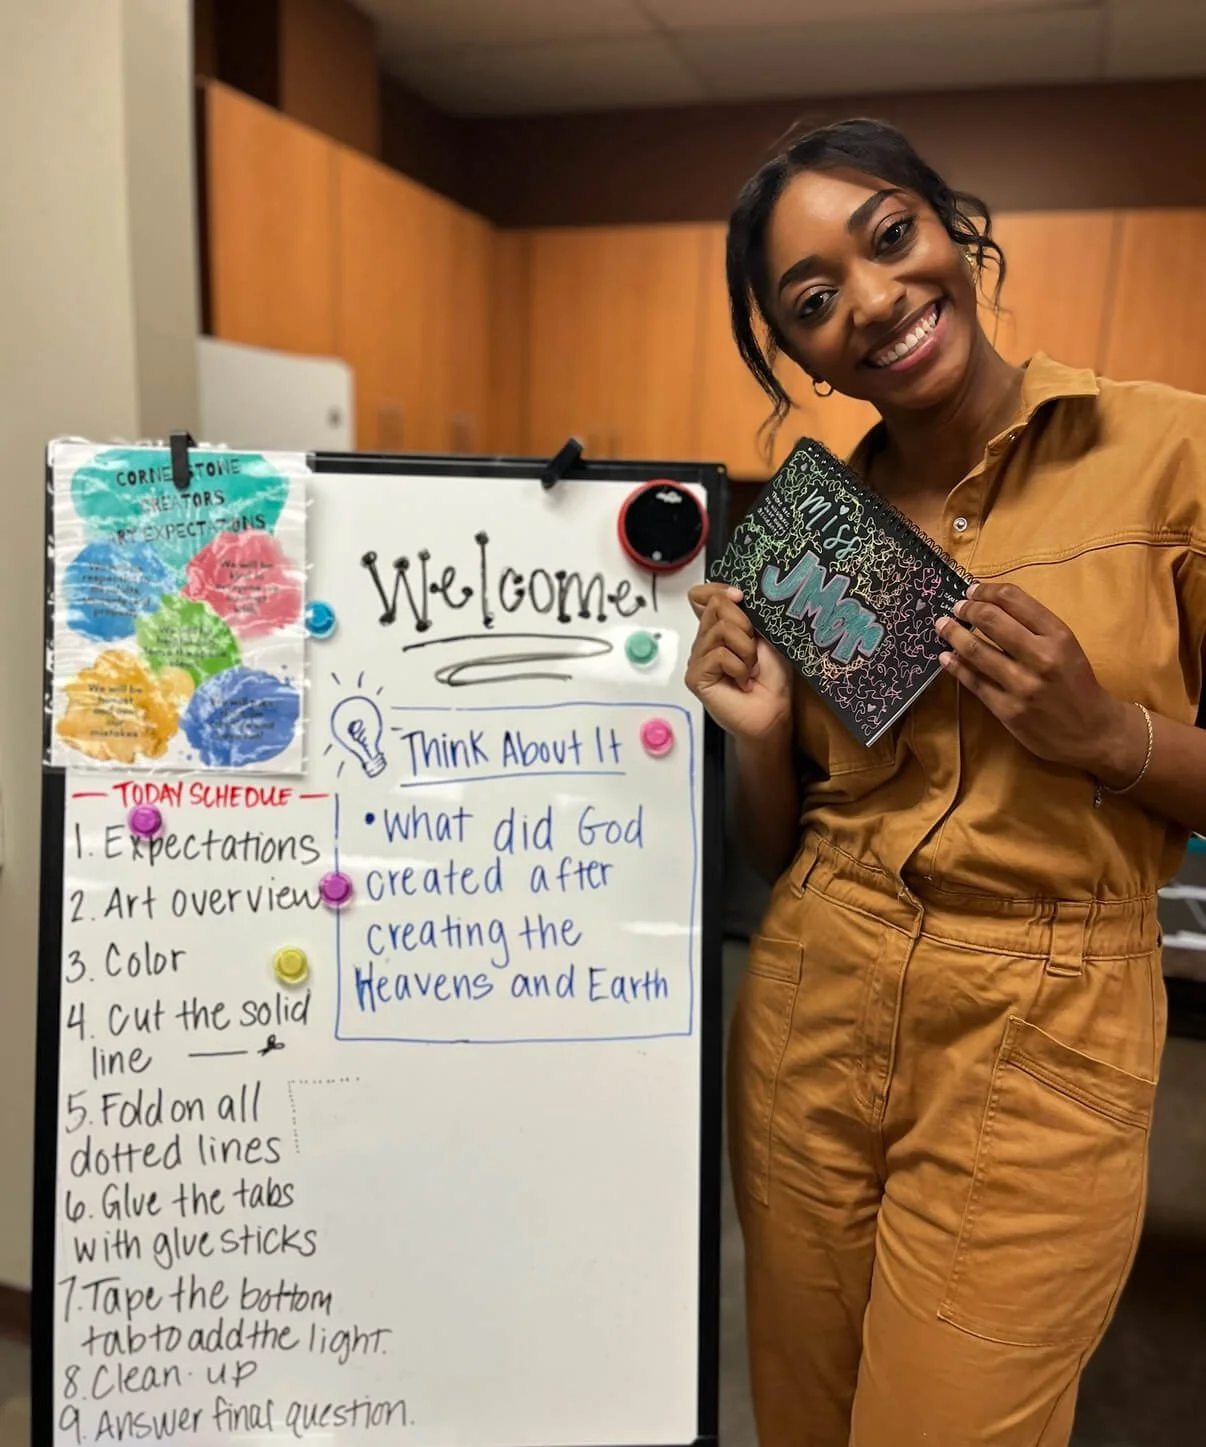 CORNERSTONE
CREATORS
ART EXPECTATIONS
We will be
We will be
We will be
honest
mistakes
Welcome!
Think About It
• What did God
created after
creating the
Heavens and Earth
— TODAY SCHEDULE —
1. Expectations
2. Art overview
3. Color
4. Cut the solid
line
5. Fold on all
dotted lines
6. Glue the tabs
with glue sticks
7. Tape the bottom
tab to add the light.
8. Clean-up
9. Answer final question.
miss
JMor